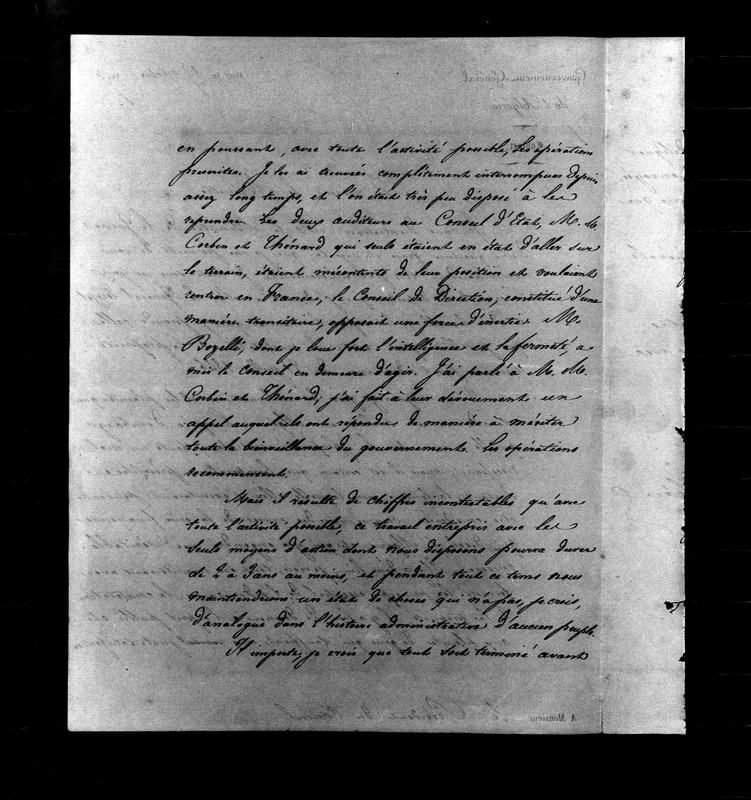 en poussant, avec toute l'activité possible, les opérations
prescrites. Je les ai trouvées complètement interrompues depuis
assez long temps, et l'on était très peu disposé à les
reprendre. Les deux auditeurs au Conseil d'Etat, M. M.
Corbin et Thénard qui seuls étaient en état d'aller sur
le terrain, étaient mécontents de leur position et voulaient
rentrer en France; le Conseil de Direction, constitué d'une
manière transitoire, opposait une force d'inertie. M.
Bozelli, dont je loue fort l'intelligence et la fermeté, a
mis le Conseil en demeure d'agir. J'ai parlé à M. M.
Corbin et Thénard; j'ai fait à leur dévouement un
appel auquel ils ont répondu de manière à mériter
toute la bienveillance du gouvernement. Les opérations
recommencent.
Mais il résulte de chiffres incontestables qu'avec
toute l'activité possible, ce travail entrepris avec les
seuls moyens d'action dont nous disposons pourra durer
de 2 à 3 ans au moins, et pendant tout ce tems nous
maintiendrions un état de choses qui n'a pas, je crois,
d'analogue dans l'histoire administrative d'aucun peuple.
Il importe, je crois que tout soit terminé avant
Gouvernement Général
de l'Algérie
A Monsieur